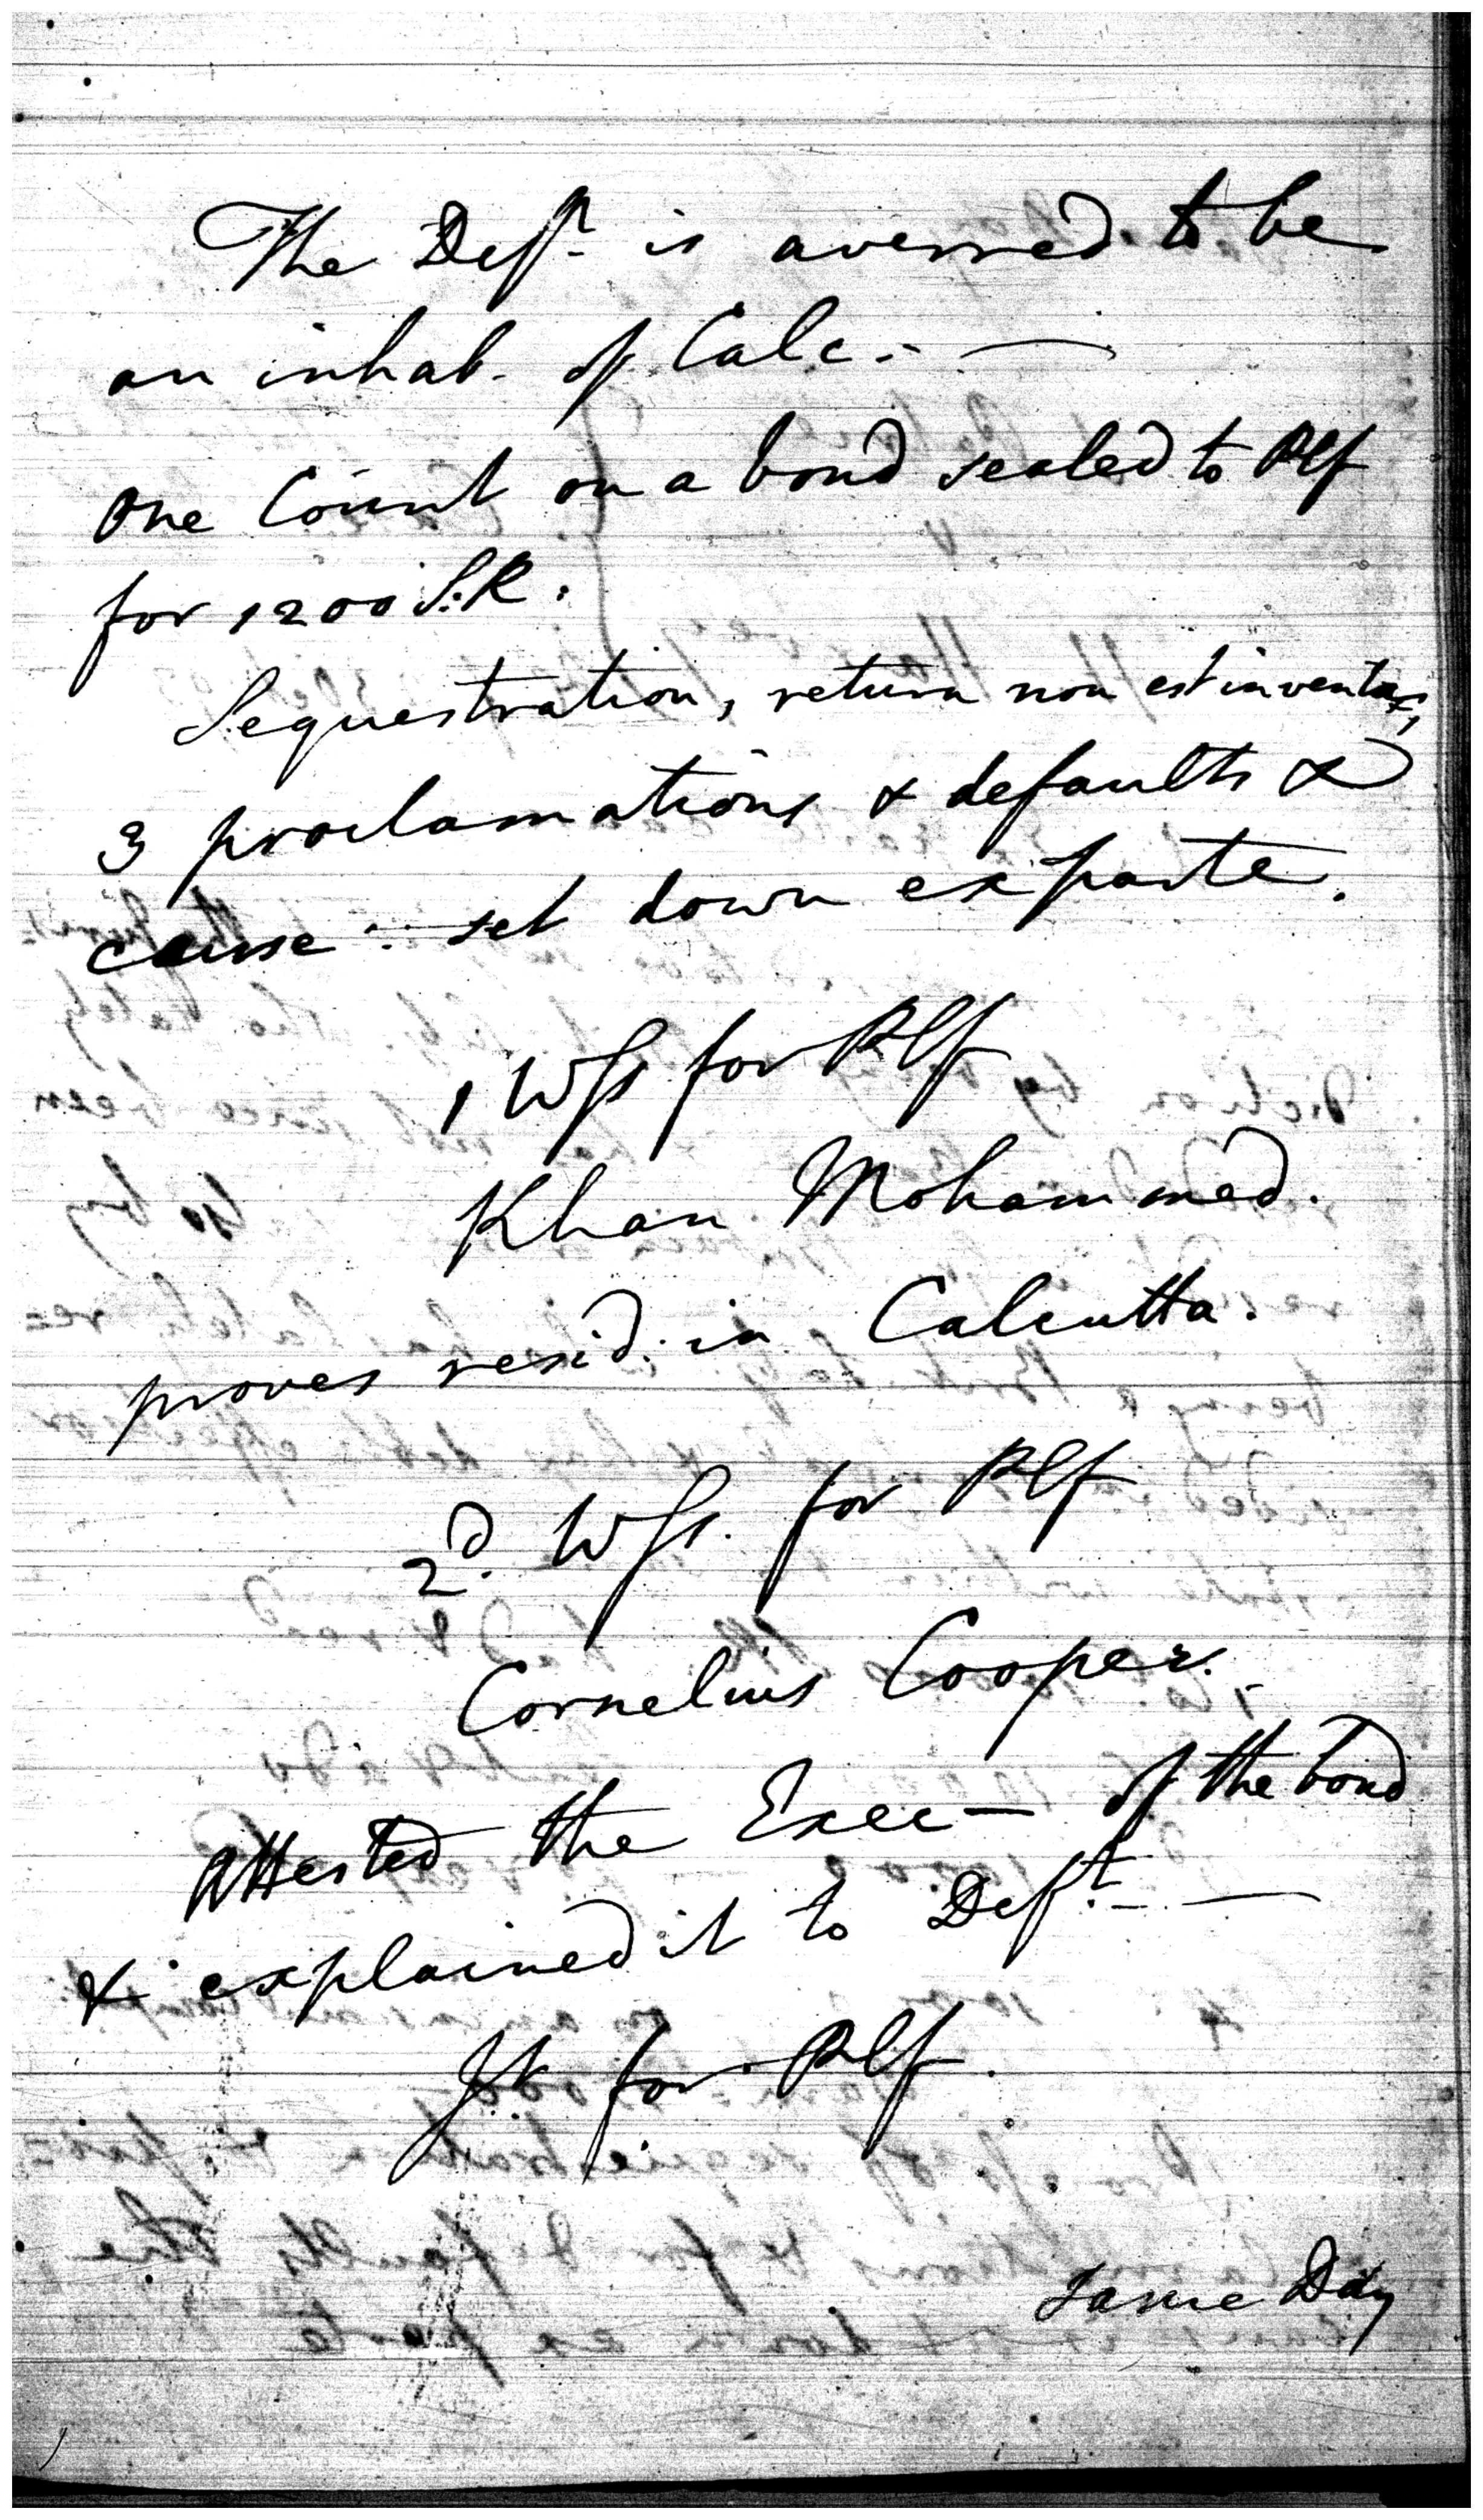 The Deft. is averred to be
an inhab. of Calc. —
One Count on a bond sealed to Plf
for 1200 S.R.
Sequestration, return non est inventus,
3 proclamations & defaults &
cause set down ex parte.
1 Wss for Plf
Khan Mohammed.
proves resid. in Calcutta.
2d. Wss. for Plf
Cornelius Cooper.
Attested the Exec— of the bond
& explained it to Deft. —
Jt for Plf.
Same Day